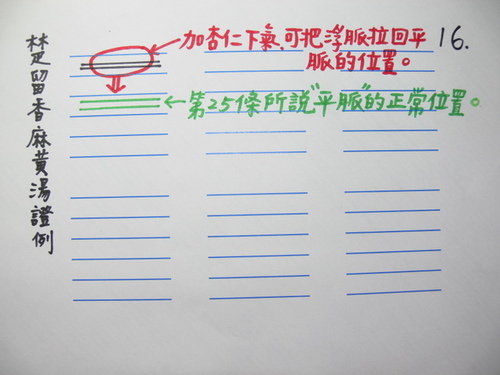 楚留香麻黃湯證例
加杏仁下氣、可把浮脈拉回平
脈的位置。
16.
←第25條所說"平脈"的正常位置。